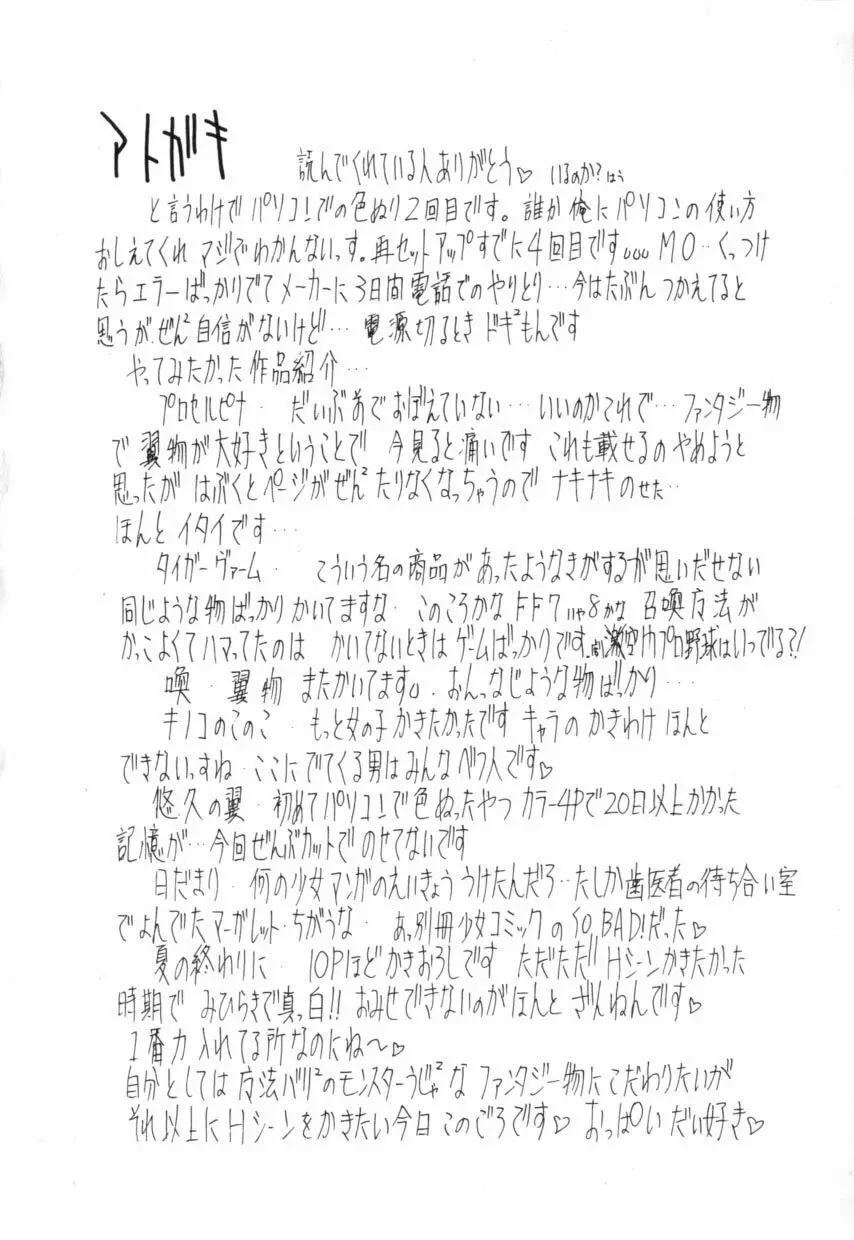 アトガキ
読んでくれている人ありがとう♡ いるのか?はぅ
と言うわけで パソコンでの色ぬり2回目です。誰か俺にパソコンの使い方
おしえてくれ マジでわかんないっす。再セットアップすでに4回目です。。。MO‥くっつけ
たらエラーばっかりでてメーカーに3日間電話でのやりとり…今はたぶんつかえてると
思うが、ぜん²自信がないけど… 電源切るとき ドキ²もんです
やってみたかった作品紹介…
プロセルピナ・ だいぶ前でおぼえていない…いいのかこれで…ファンタジー物
で翼物が大好きということで 今見ると痛いです これも載せるのやめようと
思ったが はぶくとページがぜん²たりなくなっちゃうので ナキナキのせた‥
ほんとイタイです…
タイガーヴァーム・ こういう名の商品があったようなきがするが思いだせない
同じような物ばっかりかいてますな・このころかなFF7いや8かな 召喚方法が
かっこよくてハマってたのは かいてないときはゲームばっかりです。劇空間プロ野球はいつでる?!
喚・翼物 またかいてます。おんなじような物ばっかり…
キノコのこのこ・もっと女の子かきたかったです キャラのかきわけほんと
できないっすね・ここにでてくる男はみんなベツ人です♡
悠久の翼・初めてパソコンで色ぬったやつ カラー4Pで20日以上かかった
記憶が…今回ぜんぶカットでのせてないです
日だまり・何の少女マンガのえいきょううけたんだろ‥たしか歯医者の待ち合い室
でよんでたマーガレット・ちがうな・あっ別冊少女コミックのSO,BAD!だった♡
夏の終わりに・10Pほどかきおろしです ただただ!!Hシーンかきたかった
時期で みひらきで真っ白!!おみせできないのがほんと ざんねんです♡
1番力入れてる所なのにね〜♡
自分としては 方法バリ²のモンスターうじゃ²な ファンタジー物にこだわりたいが
それ以上にHシーンをかきたい今日このごろです♡ おっぱいだい好き♡